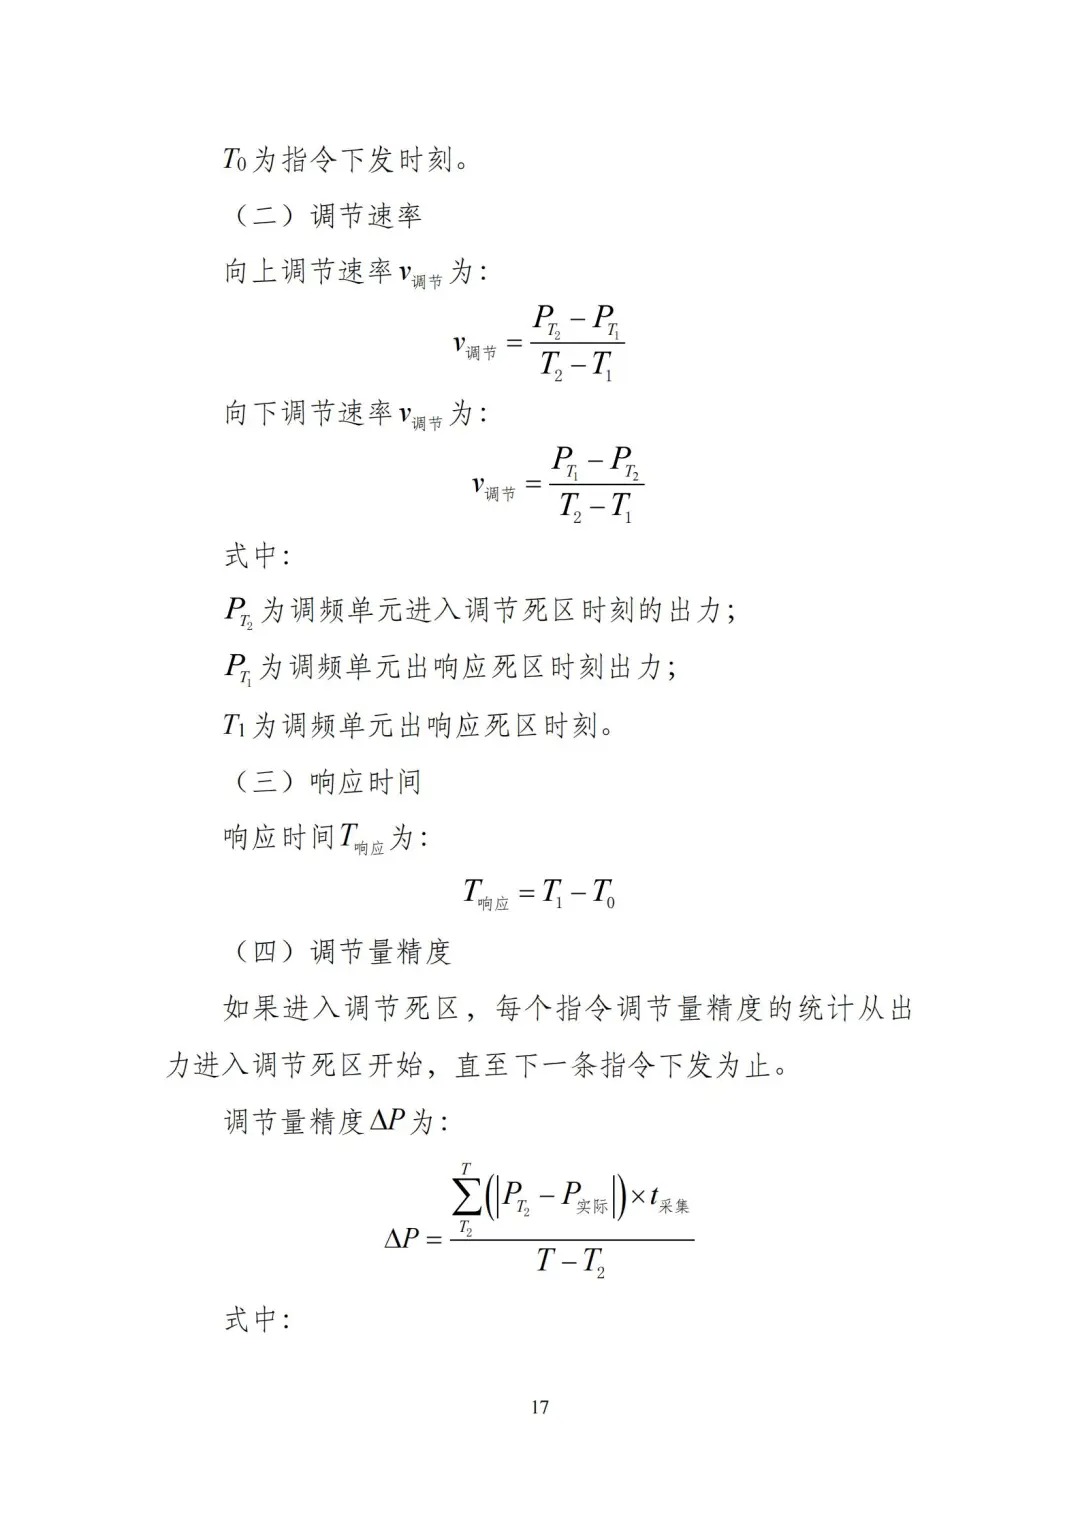 T₀为指令下发时刻。
（二）调节速率
向上调节速率v调节为：
v调节 = (P_{T₂} − P_{T₁}) / (T₂ − T₁)
向下调节速率v调节为：
v调节 = (P_{T₁} − P_{T₂}) / (T₂ − T₁)
式中：
P_{T₂}为调频单元进入调节死区时刻的出力；
P_{T₁}为调频单元出响应死区时刻出力；
T₁为调频单元出响应死区时刻。
（三）响应时间
响应时间T响应为：
T响应 = T₁ − T₀
（四）调节量精度
如果进入调节死区，每个指令调节量精度的统计从出
力进入调节死区开始，直至下一条指令下发为止。
调节量精度ΔP为：
ΔP = (∑_{T₂}^{T} (|P_{T₂} − P实际|) × t采集) / (T − T₂)
式中：
17